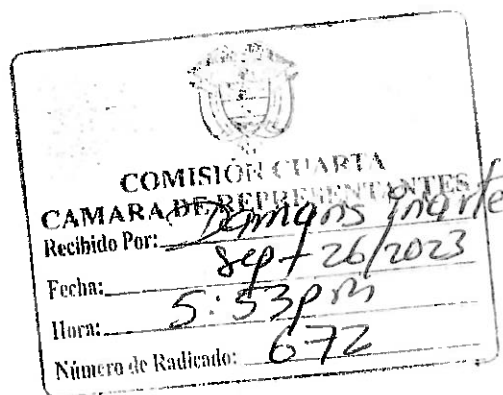 COMISIÓN CUARTA
CAMARA DE REPRESENTANTES
Recibido Por:
Fecha: Sep-26/2023
Hora: 5:53pm
Número de Radicado: 672